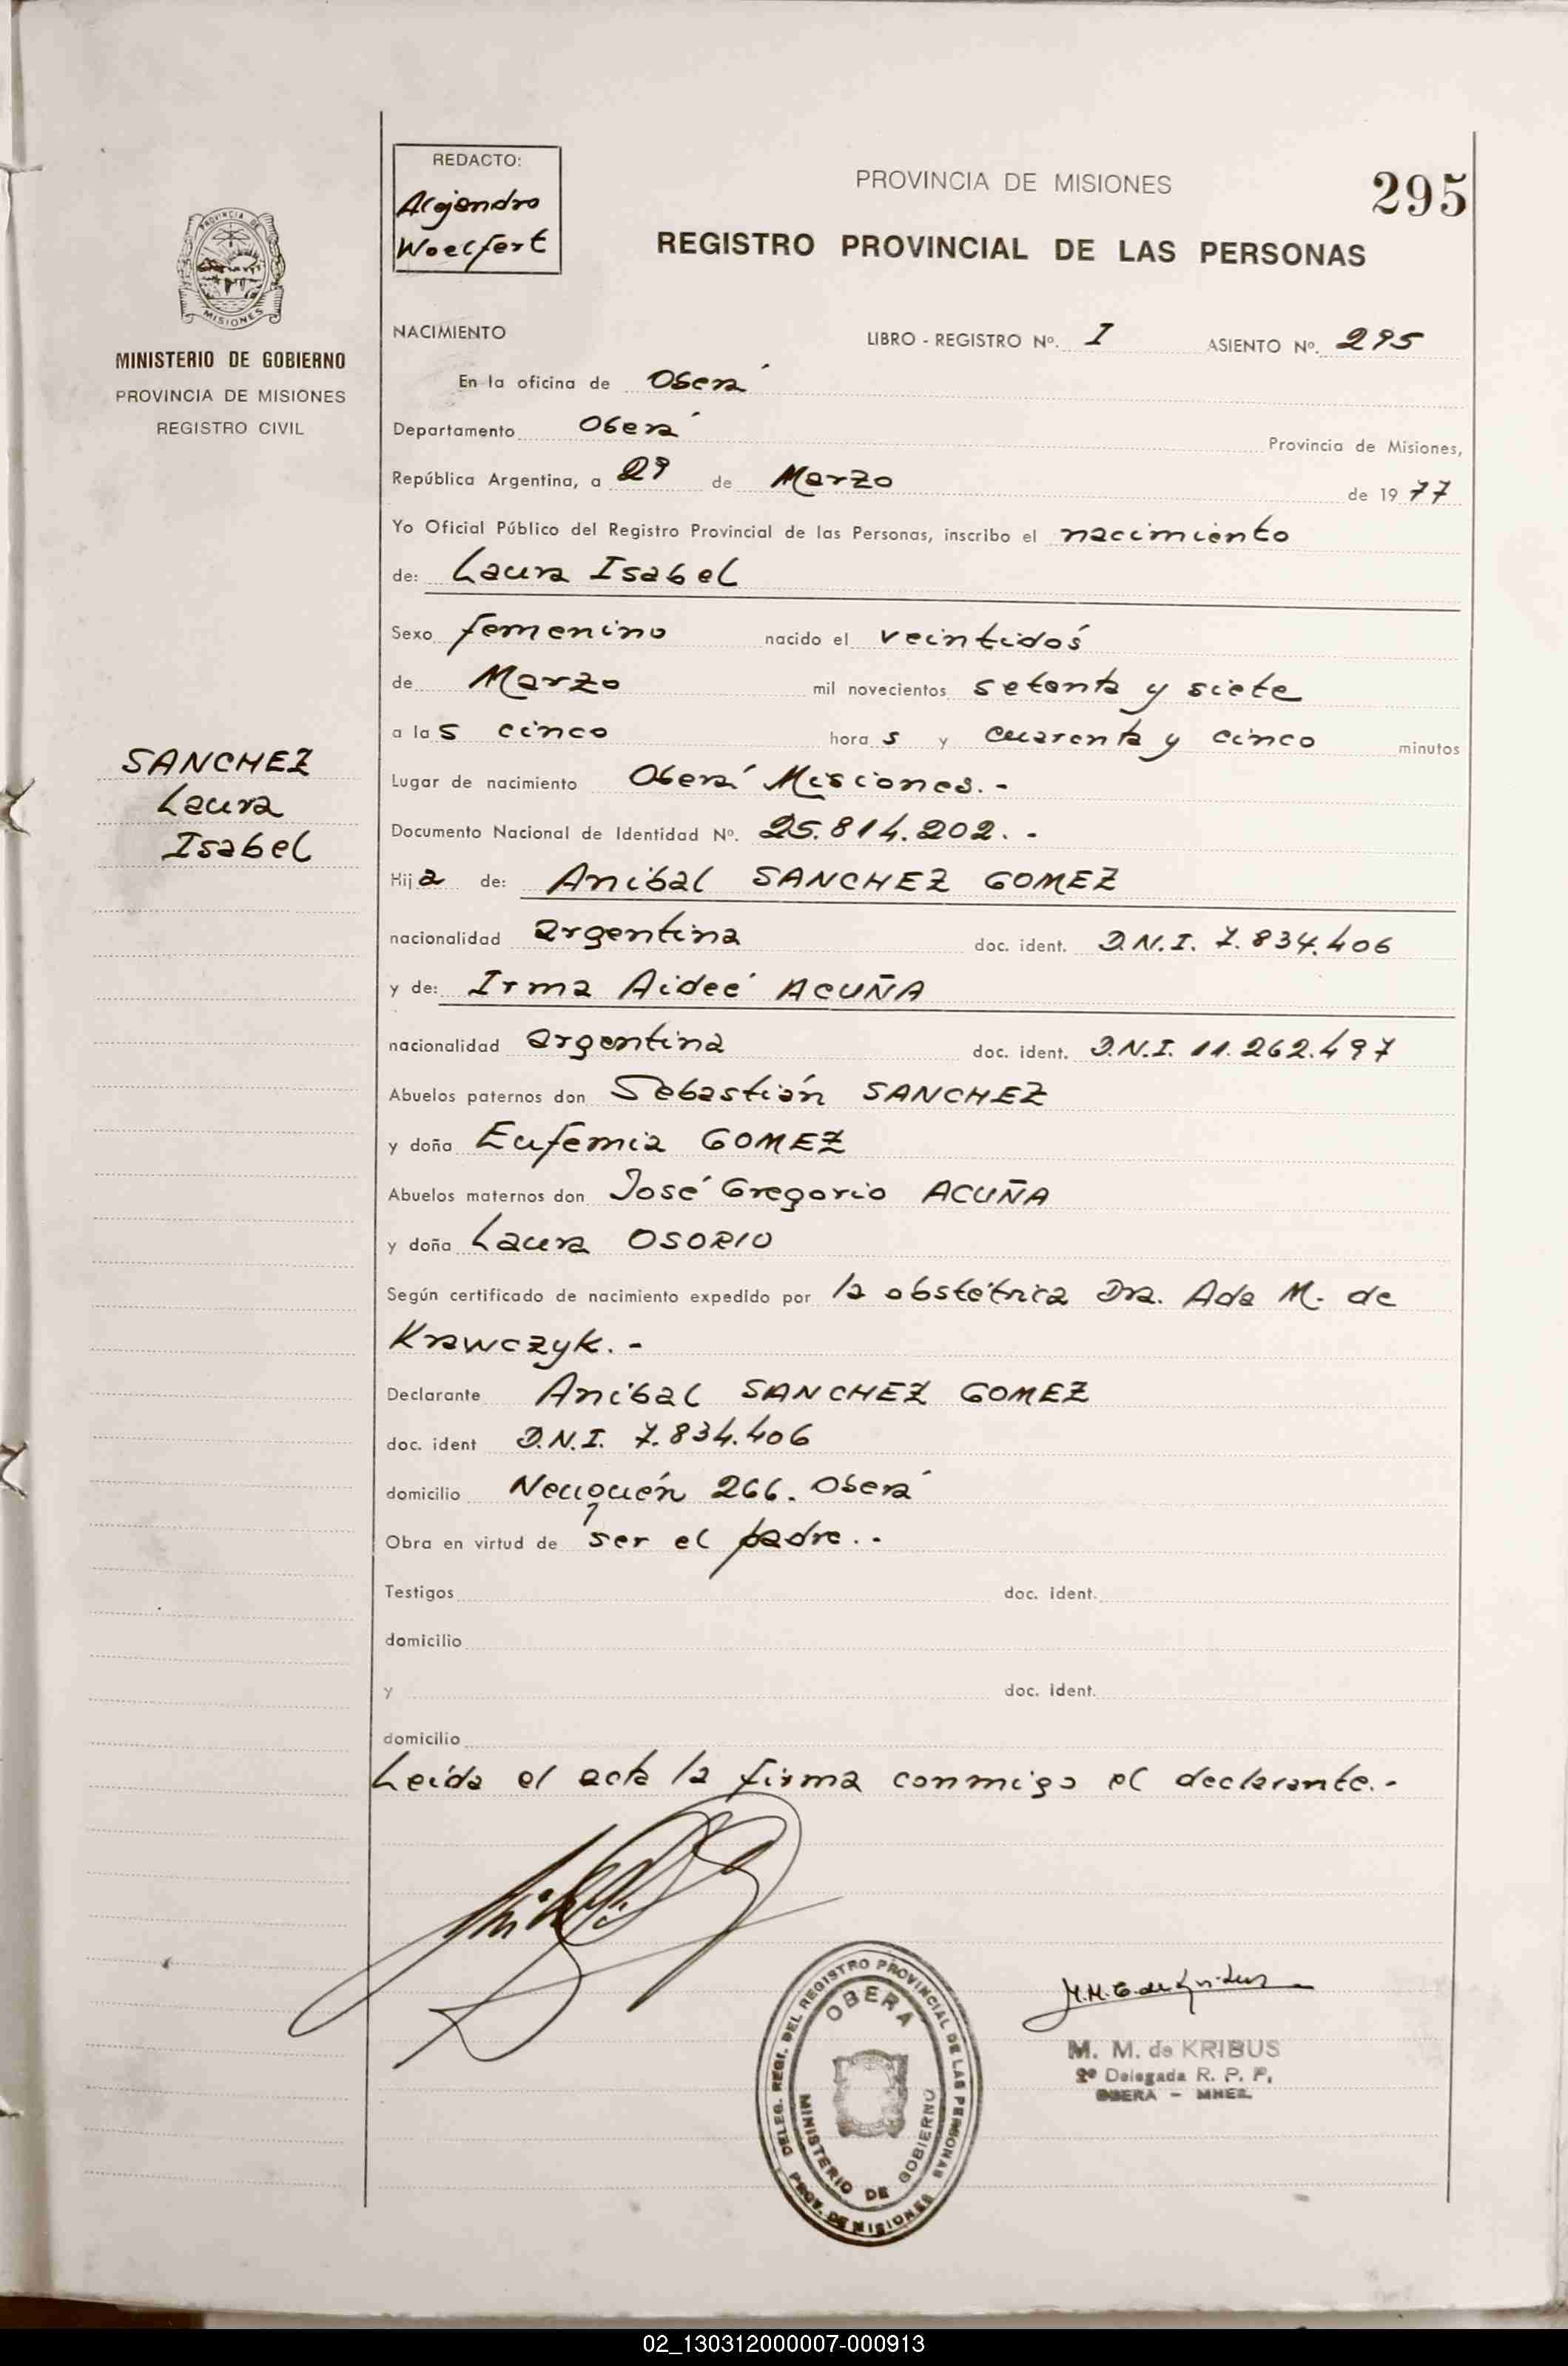 REDACTO:
Alejandro
Woelfert
PROVINCIA DE MISIONES
295
REGISTRO PROVINCIAL DE LAS PERSONAS
PROVINCIA DE
MISIONES
MINISTERIO DE GOBIERNO
PROVINCIA DE MISIONES
REGISTRO CIVIL
SANCHEZ
Laura
Isabel
NACIMIENTO LIBRO - REGISTRO Nº. I ASIENTO Nº. 295
En la oficina de Oberá
Departamento Oberá Provincia de Misiones,
República Argentina, a 29 de Marzo de 1977
Yo Oficial Público del Registro Provincial de las Personas, inscribo el nacimiento
de: Laura Isabel
Sexo femenino nacido el veintidós
de Marzo mil novecientos setenta y siete
a las cinco horas y cuarenta y cinco minutos
Lugar de nacimiento Oberá Misiones.-
Documento Nacional de Identidad Nº. 25.814.202.-
Hija de: Anibal SANCHEZ GOMEZ
nacionalidad argentina doc. ident. D.N.I. 7.834.406
y de: Irma Aideé ACUÑA
nacionalidad argentina doc. ident. D.N.I. 11.262.497
Abuelos paternos don Sebastián SANCHEZ
y doña Eufemia GOMEZ
Abuelos maternos don José Gregorio ACUÑA
y doña Laura OSORIO
Según certificado de nacimiento expedido por la obstétrica Dra. Ada M. de
Krawczyk.-
Declarante Anibal SANCHEZ GOMEZ
doc. ident D.N.I. 7.834.406
domicilio Neuquén 266. Oberá
Obra en virtud de ser el padre.-
Testigos doc. ident.
domicilio
y doc. ident.
domicilio
Leída el acta la firma conmigo el declarante.-
DELEG. REGI. DEL REGISTRO PROVINCIAL DE LAS PERSONAS
OBERA
MINISTERIO DE GOBIERNO
PROV. DE MISIONES
M. M. de KRIBUS
2º Delegada R. P. P.
OBERA - MNES.
02_130312000007-000913